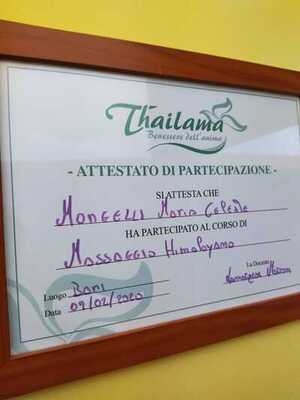 Thailama
Benessere dell'anima
- ATTESTATO DI PARTECIPAZIONE -
SI ATTESTA CHE
Mongelli Maria Celeste
HA PARTECIPATO AL CORSO DI
Massaggio Himalayano
Luogo Bari
La Docente
Data 09/02/2020